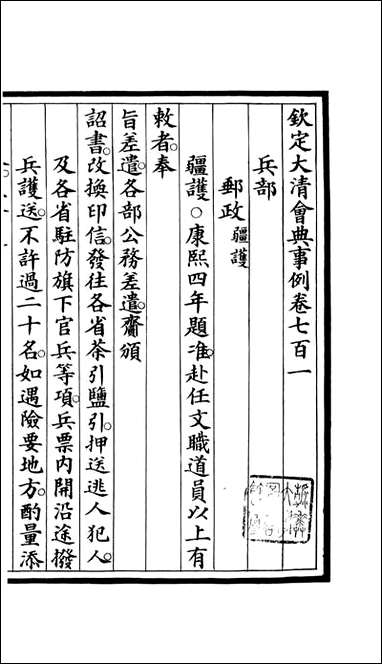 欽定大清會典事例卷七百一
兵部
郵政疆護
疆護○康熙四年題准。赴任文職道員以上有
敕者。奉
旨差遣。各部公務差遣。齎頒
詔書。改換印信。發往各省茶引鹽引。押送逃人犯人。
及各省駐防旗下官兵等項。兵票內開沿途撥
兵護送。不許過二十名。如遇險要地方。酌量添